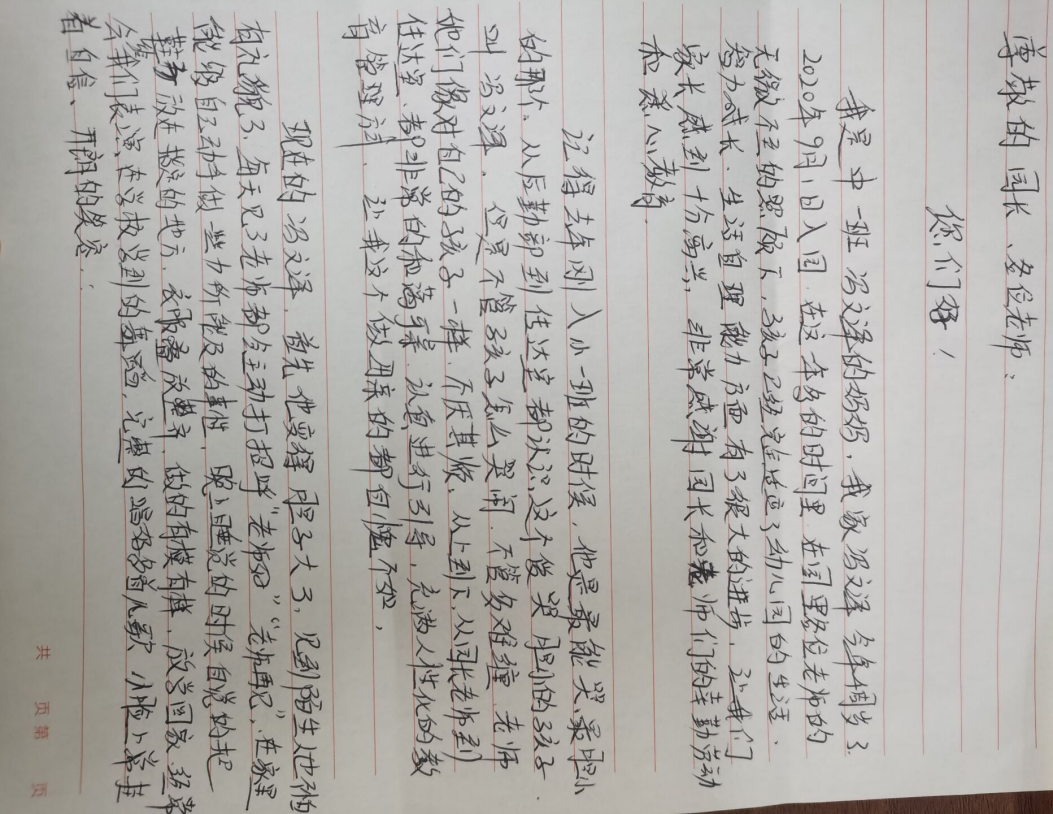 尊敬的园长、各位老师：
您们好！
我是中一班冯文泽的妈妈，我家冯文泽今年4周岁了
2020年9月1日入园，在这一年多的时间里，在园里各位老师的
无微不至的照顾下，孩子已经完全适应了幼儿园的生活．
智力成长、生活自理能力方面有了很大的进步，让我们
家长感到十分高兴，非常感谢园长和老师们的辛勤劳动
和悉心教育
记得去年刚入小一班的时候，他是最能哭、最胆小
的那个。从后勤部到住达室都认识这个爱哭胆小的孩子
叫冯文泽．但是不管孩子怎么哭闹．不管多难缠．老师
他们像对自己的孩子一样．不厌其烦．从上到下、从园长老师到
住达室、都非常的和蔼可亲、认真进行引导，充满人性化的教
育管理词，让我这个做母亲的都自愧不如，
现在的冯文泽．首先他变得胆子大了，见到陌生人也不怕
有礼貌了．每天见了老师都会主动打招呼“老师好”“老师再见”．在家里
能够自己动手做一些力所能及的事情，晚上睡觉的时候自觉的把
鞋子放进该放的地方．衣服叠放整齐．做的有模有样．放学回家．经常
会我们表演在学校学到的舞蹈，完整的唱好多首儿歌 小脸上常挂
着自信、开朗的笑容．
共 页 第 页